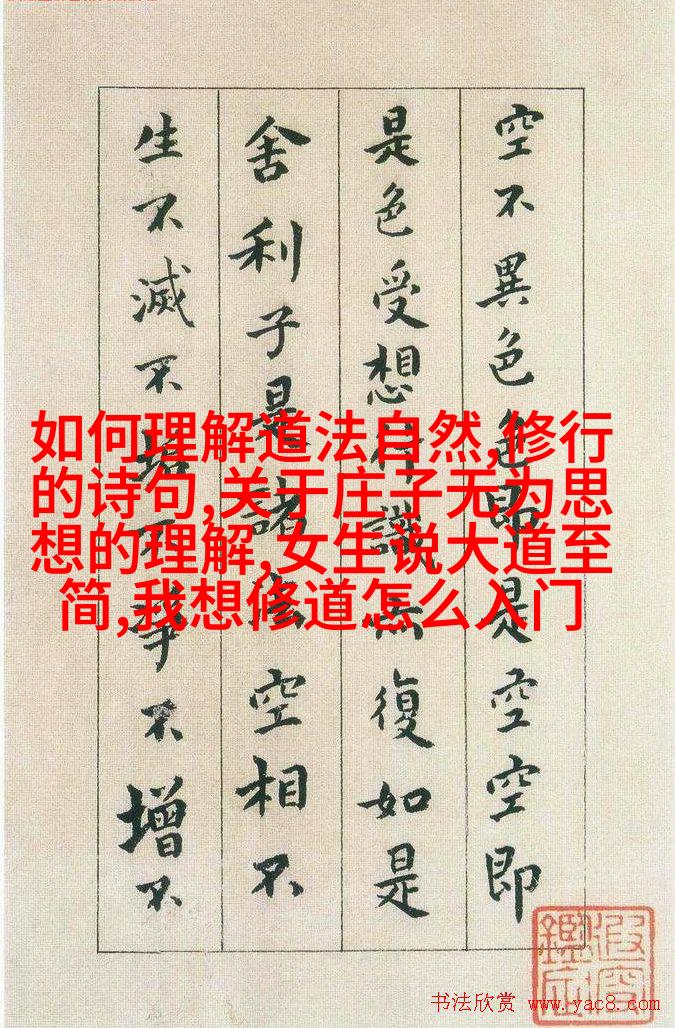 空不異色色即是空空即
是色受想行識亦復如是
舍利子是諸法空相不
生不滅不垢不淨不增不
如何理解道法自然,修行
的诗句,关于庄子无为思
想的理解,女生说大道至
简,我想修道怎么入门
书法欣赏 www.yac8.com